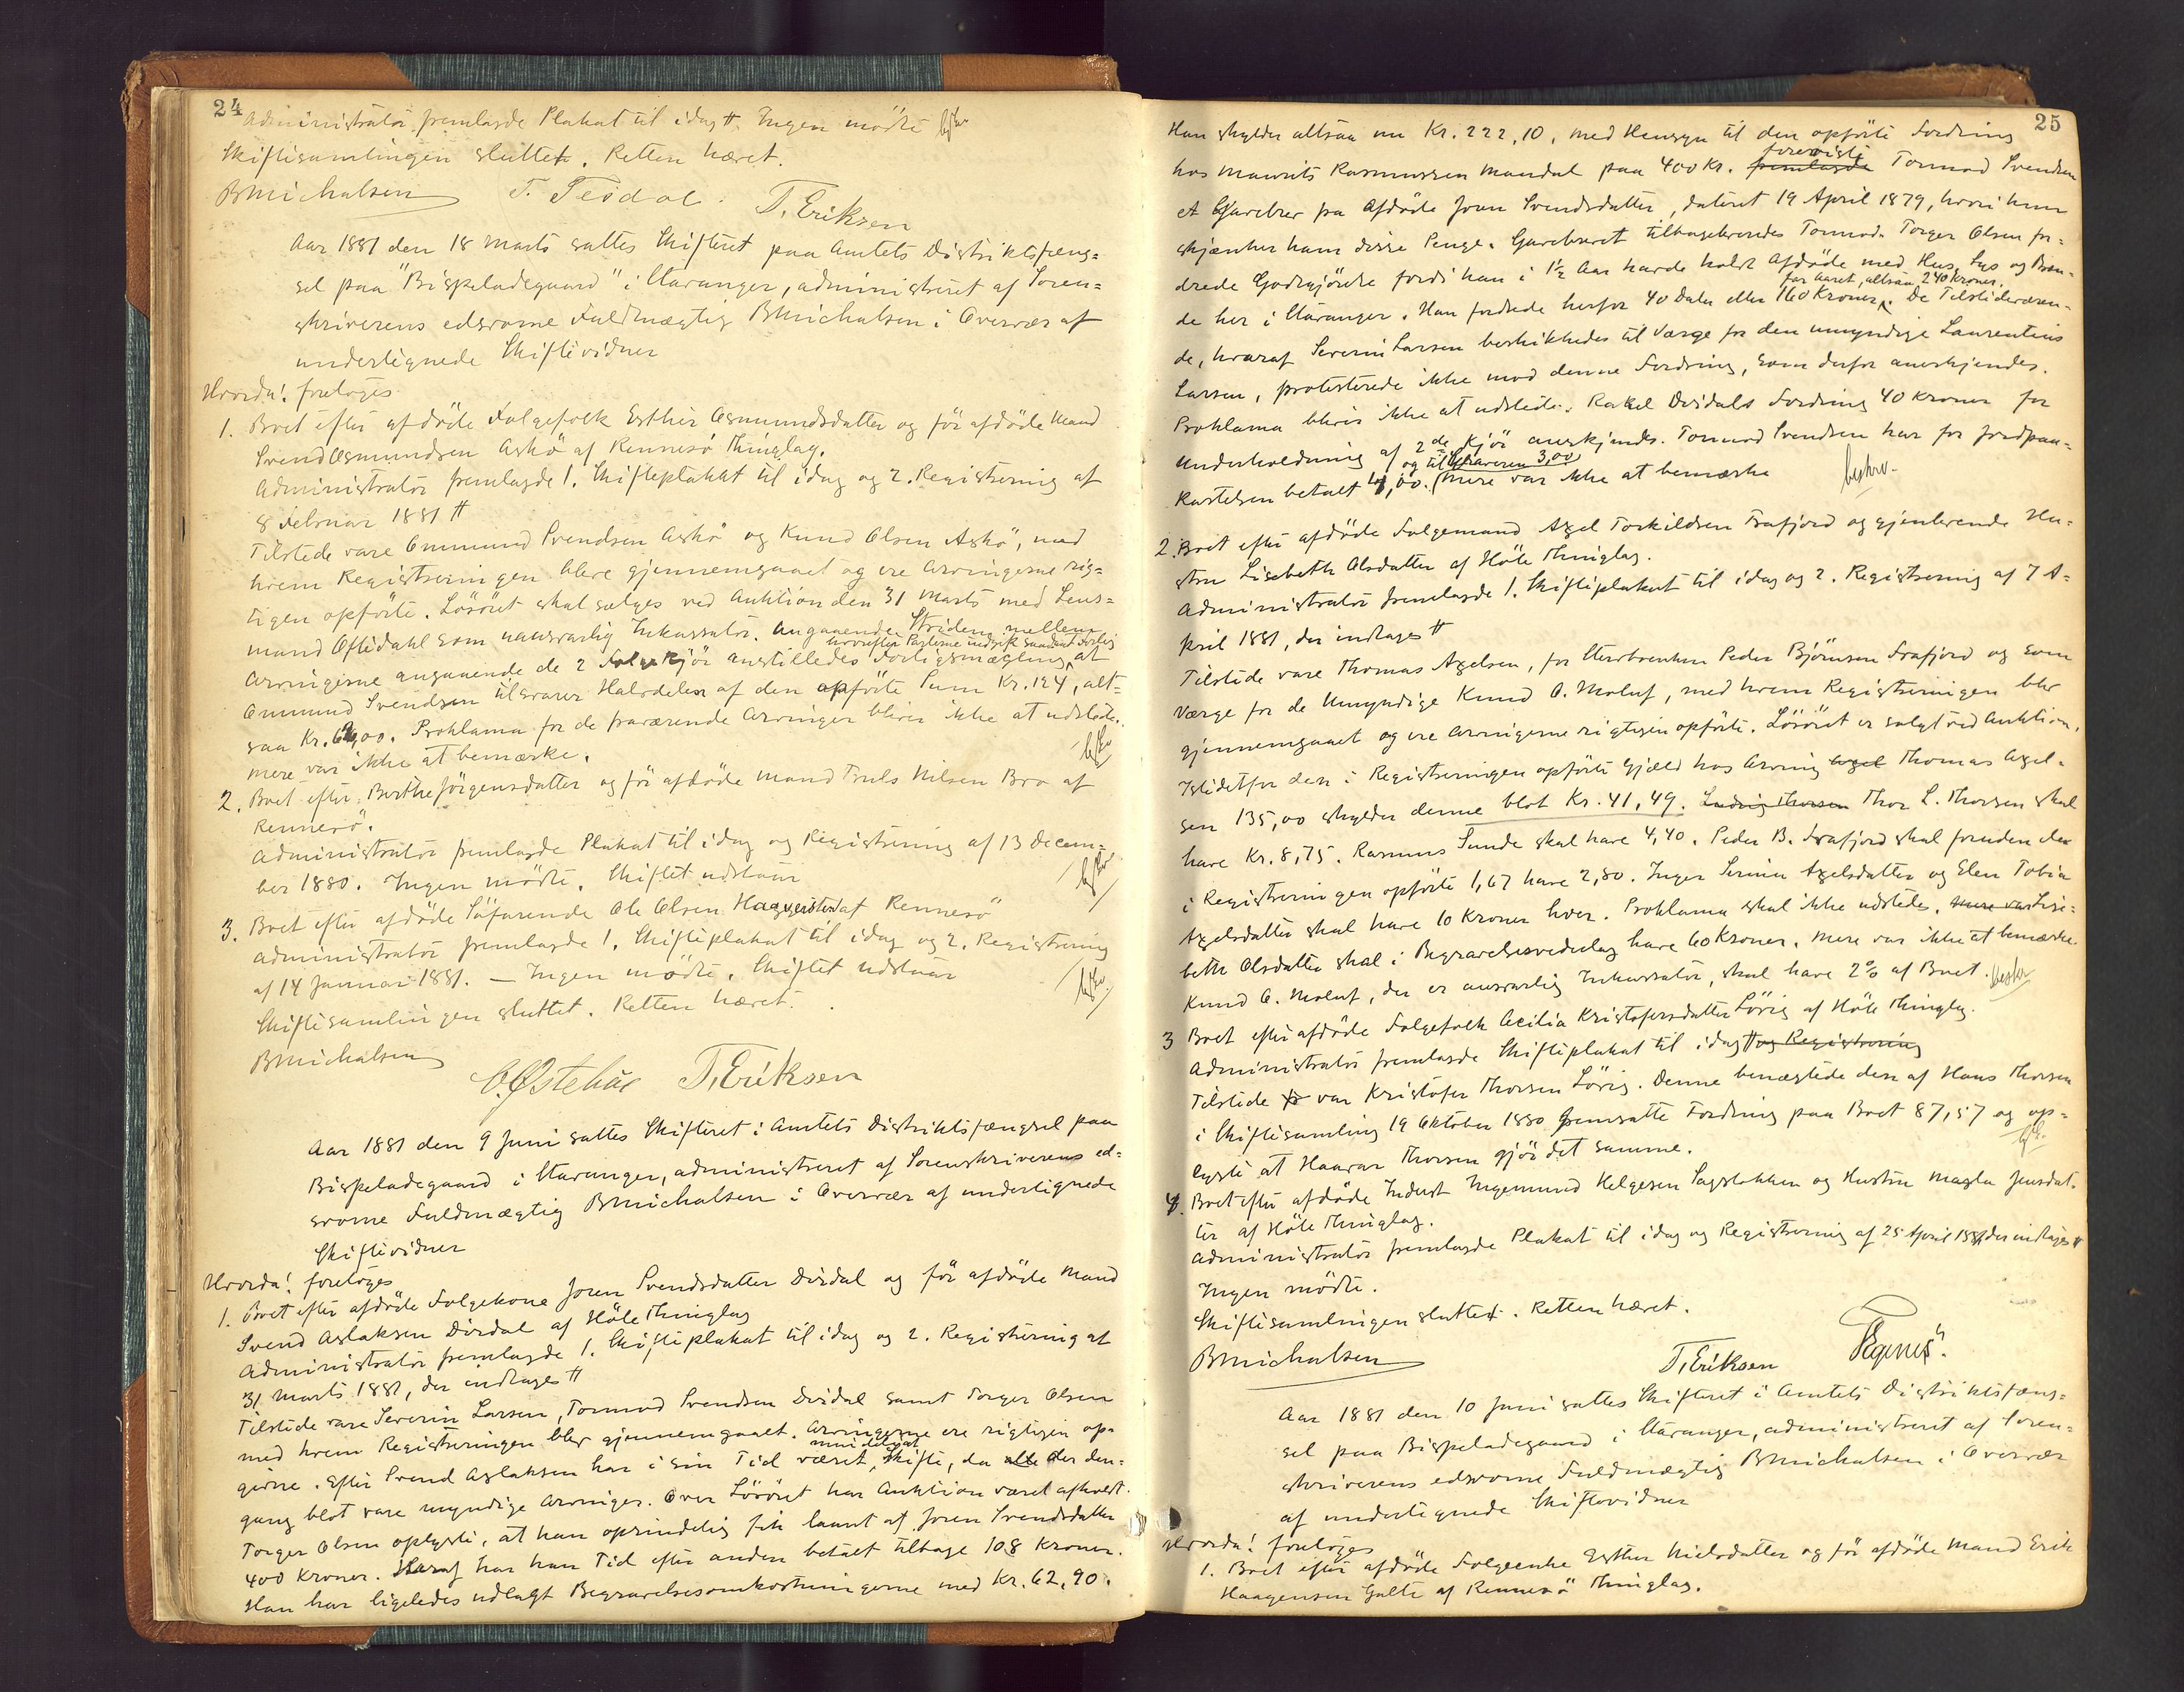 24
Administrator fremlagde Plakat til idag # Ingen mødte
Skiftesamlingen sluttet. Retten hævet.
BMichalsen T. Tesdal. T. Eriksen
Aar 1881 den 18 Marts sattes Skifteret paa Amtets Distriktsfæng=
sel paa "Bispeladegaard" i Stavanger, administreret af Soren=
skriverens edsvorne Fuldmægtig BMichalsen i Overvær af
undertegnede Skiftevidner
Hvorda! foretoges
1. Boet efter afdøde Folgefolk Esther Osmundsdatter og før afdøde Mand
Svend Osmundsen Askø af Rennesø Thinglag.
Administrator fremlagde 1. Skifteplakat til idag og 2. Registrering af
8 Februar 1881 #
Tilstede vare Ommund Svendsen Askø og Knud Olsen Askø, med
hvem Registreringen blev gjennemgaaet og ere Arvingerne rig=
tigen opførte. Løsøret skal sælges ved Auktion den 31 Marts med Lens=
mand Oftedahl som uansvarlig Inkassator. Angaaende Striden mellem
hvorefter Parterne indgik saadant Forlig
Arvingerne angaaende de 2 Folgekjør anstilledes Forligsmægling, at
Ommund Svendsen tilsvarer Halvdelen af den opførte Sum Kr. 124, alt=
saa Kr. 62,00. Proklama for de fraværende Arvinger bliver ikke at udstede.
Mere var ikke at bemærke.
2. Boet efter Berthe Jörgensdatter og før afdøde Mand Truls Nilsen Bro af
Rennesø.
Administrator fremlagde Plakat til idag og Registrering af 13 Decem=
ber 1880. Ingen mødte. Skiftet udstaar
3. Boet efter afdøde Søfarende Ole Olsen af Rennesø
Administrator fremlagde 1. Skifteplakat til idag og 2. Registrering
af 14 Januar 1881. — Ingen mødte. Skiftet udstaar
Skiftesamlingen sluttet. Retten hævet.
BMichalsen
O. Østebø T. Eriksen
Aar 1881 den 9 Juni sattes Skifteret i Amtets Distriktsfængsel paa
Bispeladegaard i Stavanger, administreret af Sorenskriverens ed=
svorne Fuldmægtig BMichalsen i Overvær af undertegnede
Skiftevidner
Hvorda! foretoges
1. Boet efter afdøde Folgekone Joren Svendsdatter Dirdal og før afdøde Mand
Svend Aslaksen Dirdal af Höle Thinglag
Administrator fremlagde 1. Skifteplakat til idag og 2. Registrering af
31 Marts 1881, der indtages #
Tilstede vare Severin Larsen, Tormod Svendsen Dirdal samt Torger Olsen
med hvem Registreringen blev gjennemgaaet. Arvingerne ere rigtigen op=
mindeligt
givne. Efter Svend Aslaksen har i sin Tid været Skifte, da alle der den=
gang blot vare myndige Arvinger. Over Løsøret har Auktion været afholdt.
Torger Olsen oplyste, at han oprindelig fik laant af Joren Svendsdatter
400 Kroner. Heraf har han Tid efter anden betalt tilbage 108 Kroner.
Han har ligeledes udlagt Begravelsesomkostningerne med Kr. 62,90.
25
Han skylder altsaa nu Kr. 222,10. Med Hensyn til den opførte Fordring
foreviste
hos Maurits Rasmussen Mandal paa 400 Kr. fremlagde Tormod Svendsen
et Gavebrev fra Afdøde Joren Svendsdatter, dateret 19 April 1879, hvori hun
skjænker ham disse Penge. Gavebrevet tilbageleveredes Tormod. Torger Olsen for=
drede Godtgjørelse fordi han i 1½ Aar havde holdt Afdøde med Hus, Lys og Bræn=
for Aaret, altsaa 240 Kroner.
de her i Stavanger. Han fordrede herfor 40 Daler eller 160 Kroner. De Tilstedeværen=
de, hvoraf Severin Larsen beskikkedes til Værge for den umyndige Laurentius
Larsen, protesterede ikke mod denne Fordring, som derfor anerkjendes.
Proklama bliver ikke at udstede. Rakel Dirdals Fordring 40 Kroner for
Underholdning af 2de Kjør anerkjendes. Tormod Svendsen har for Jordpaa=
og til Graveren 3,00
kastelsen betalt 4,00. Mere var ikke at bemærke beskrev.
2. Boet efter afdøde Folgemand Axel Torkildsen Frafjord og gjenlevende Hu=
stru Lisebeth Olsdatter af Höle Thinglag.
Administrator fremlagde 1. Skifteplakat til idag og 2. Registrering af 7 A=
pril 1881, der indtages #
Tilstede vare Thomas Axelsen, for Peder Björnsen Frafjord og som
Værge for de Umyndige Knud O. Moluf, med hvem Registreringen blev
gjennemgaaet og ere Arvingerne rigtigen opførte. Løsøret er solgt ved Auktion.
Istedetfor den i Registreringen opførte Gjæld hos Arving Axel Thomas Axel=
sen 135,00 skylder denne blot Kr. 41,49. Ludvig Thorsen Thor L. Thorsen skal
have Kr. 8,75. Rasmus Sunde skal have 4,40. Peder B. Frafjord skal foruden den
i Registreringen opførte 1,67 have 2,80. Inger Serine Axelsdatter og Elen Tobia
Axelsdatter skal have 10 Kroner hver. Proklama skal ikke udstedes. Mere var Lise=
beth Olsdatter skal i Begravelsesvederlag have 60 Kroner. Mere var ikke at bemærke.
Knud O. Moluf, der er ansvarlig Inkassator, skal have 2% af Boet. beskrev
3 Boet efter afdøde Folgefolk Cecilia Kristofersdatter Lövig af Höle Thinglag.
Administrator fremlagde Skifteplakat til idag # og Registrering
Tilstede var Kristofer Thorsen Lövig. Denne benægtede den af Hans Thorsen
i Skiftesamling 19 Oktober 1880 fremsatte Fordring paa Boet 87,57 og op=
lyste at Haavar Thorsen gjør det samme.
4. Boet efter afdøde Inderst Ingemund Helgesen Sagstokken og Hustru Magla Jensdat=
ter af Höle Thinglag.
Administrator fremlagde Plakat til idag og Registrering af 25 April 1881, der indtages #
Ingen mødte.
Skiftesamlingen sluttet. Retten hævet.
BMichalsen T. Eriksen
Aar 1881 den 10 Juni sattes Skifteret i Amtets Distriktsfæng=
sel paa Bispeladegaard i Stavanger, administreret af Soren=
skriverens edsvorne Fuldmægtig BMichalsen i Overvær
af undertegnede Skiftevidner
Hvorda! foretoges
1. Boet efter afdøde Folgeenke Esther Nielsdatter og før afdøde Mand Erik
Haagensen Galte af Rennesø Thinglag.